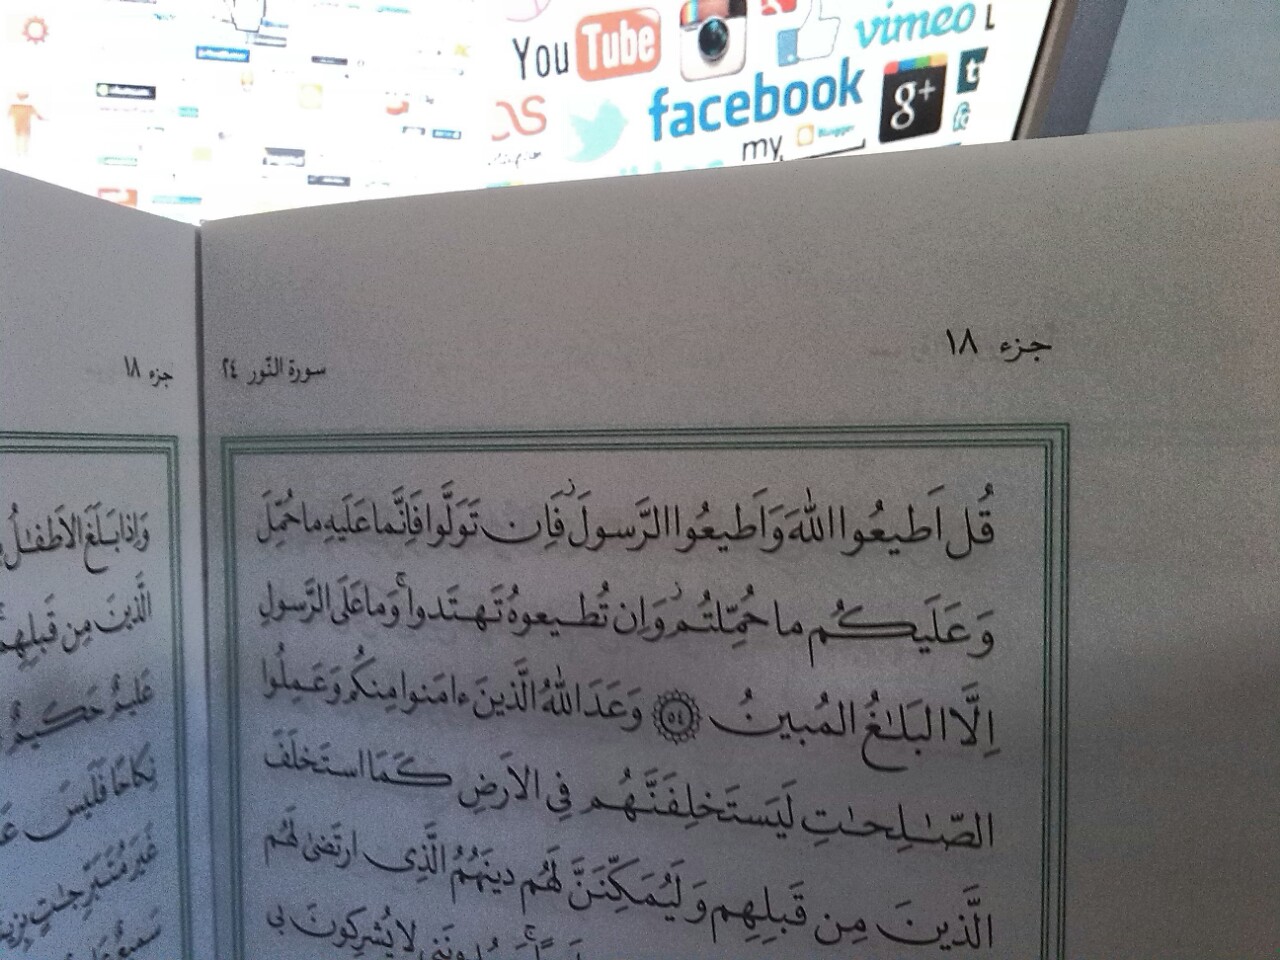 You Tube
vimeo
facebook
g+
t
my
Blogger
جزء ١٨
سورة النّور ٢٤
جزء ١٨
قُل اَطیعُوا اللّٰهَ وَاَطیعُوا الرَّسولَ ۖ فَاِن تَوَلَّوا فَاِنَّما عَلَیهِ ما حُمِّلَ
وَ عَلَیکُم ما حُمِّلتُم ۖ وَاِن تُطیعوهُ تَهتَدوا ۚ وَما عَلَى الرَّسولِ
اِلَّا البَلٰـغُ المُبینُ ﴿٥٤﴾ وَعَدَ اللّٰهُ الَّذینَ ءامَنوا مِنکُم وَعَمِلُوا
الصّٰـلِحـٰتِ لَیَستَخلِفَنَّهُم فِی الاَرضِ کَمَا استَخلَفَ
الَّذینَ مِن قَبلِهِم وَ لَیُمَکِّنَنَّ لَهُم دینَهُمُ الَّذِی ارتَضىٰ لَهُم
لا یُشرِکونَ بی
وَاِذا بَلَغَ الاَطفـٰلُ
الَّذینَ مِن قَبلِهِم
عَلیمٌ حَکیمٌ
نِکاحًا فَلَیسَ
غَیرَ مُتَبَرِّجـٰتٍ
سَمیعٌ